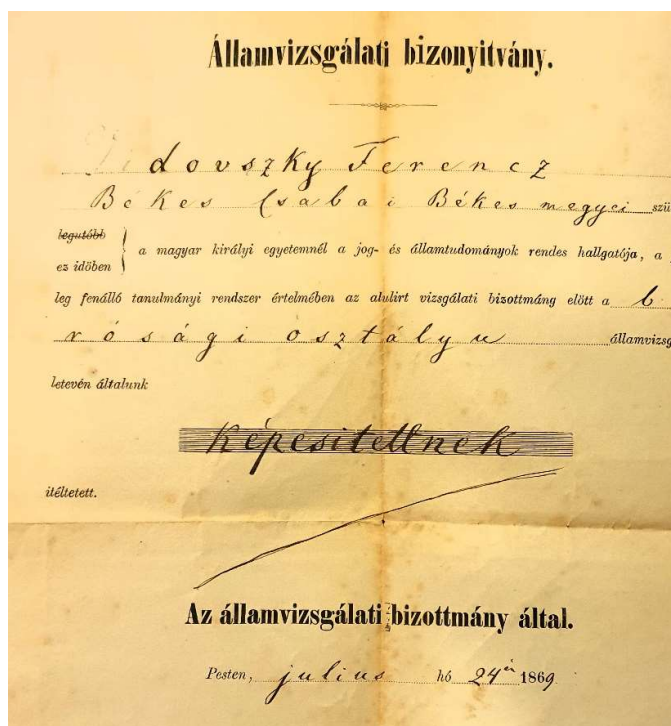 Államvizsgálati bizonyitvány.
dovszky Ferencz
Békes Csabai Békes megyei szü
legutóbb
ez időben } a magyar királyi egyetemnél a jog- és államtudományok rendes hallgatója, a
leg fenálló tanulmányi rendszer értelmében az alulirt vizsgálati bizottmáng előtt a b
rósági osztályu államvizsg
letevén általunk
képesitettnek
itéltetett.
Az államvizsgálati bizottmány által.
Pesten, julius hó 24én 1869